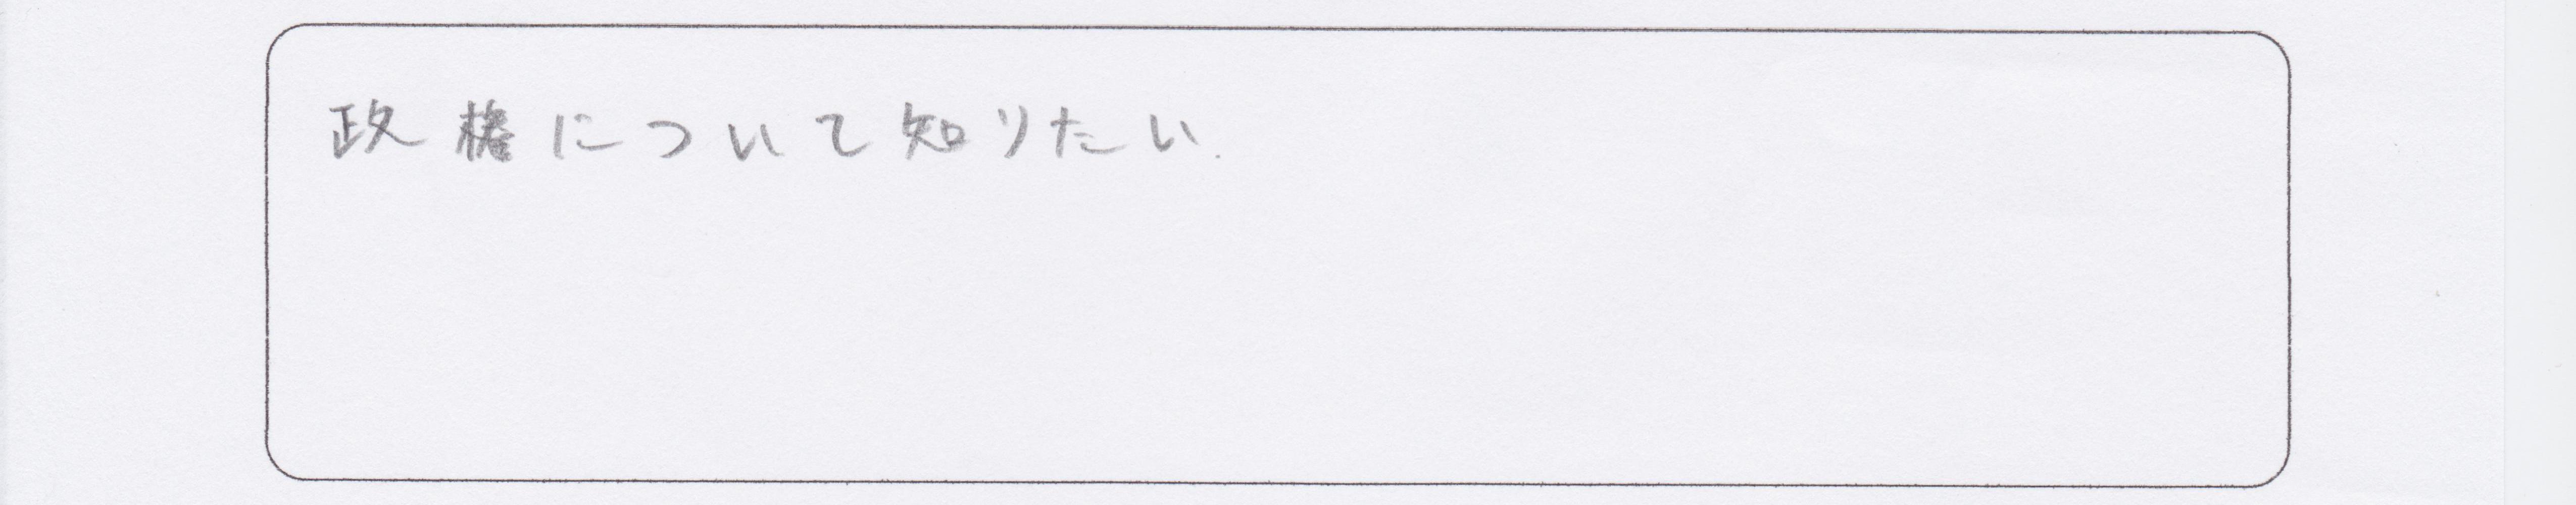 政権について知りたい.